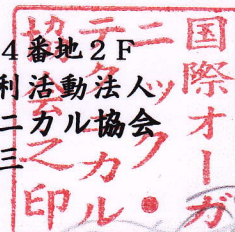 4番地2F
利活動法人
ニカル協会
三
国際オーガ
ニック●
テクニカル
協会之印